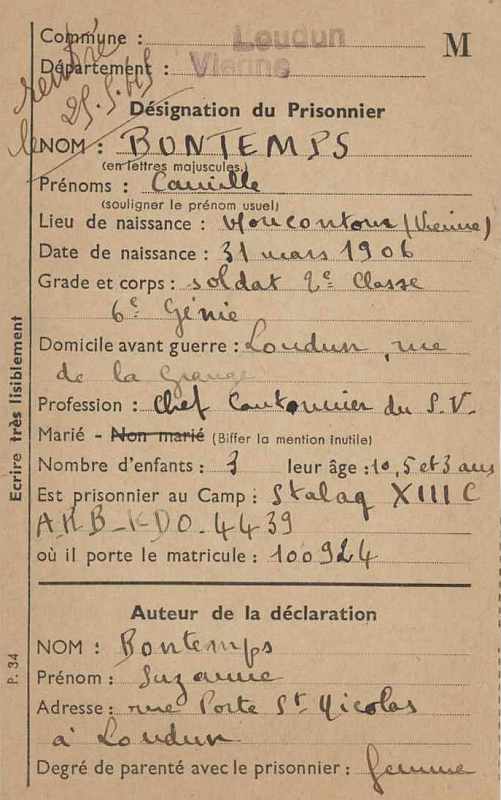 Commune : Loudun
M
Département : Vienne
rentré
le 25.5.45
Désignation du Prisonnier
NOM : BONTEMPS
(en lettres majuscules.)
Prénoms : Camille
(souligner le prénom usuel)
Lieu de naissance : Moncontour (Vienne)
Date de naissance : 31 mars 1906
Grade et corps : soldat 2e Classe
6e Génie
Domicile avant guerre : Loudun, rue
de la Grange
Profession : Chef Cantonnier du S.V.
Marié - Non marié (Biffer la mention inutile)
Nombre d'enfants : 3 leur âge : 10, 5 et 3 ans
Est prisonnier au Camp : Stalag XIII C
A.R.B-KDO-4439
où il porte le matricule : 100924
Auteur de la déclaration
NOM : Bontemps
Prénom : Suzanne
Adresse : rue Porte St Nicolas
à Loudun
Degré de parenté avec le prisonnier : femme
Ecrire très lisiblement
P. 34